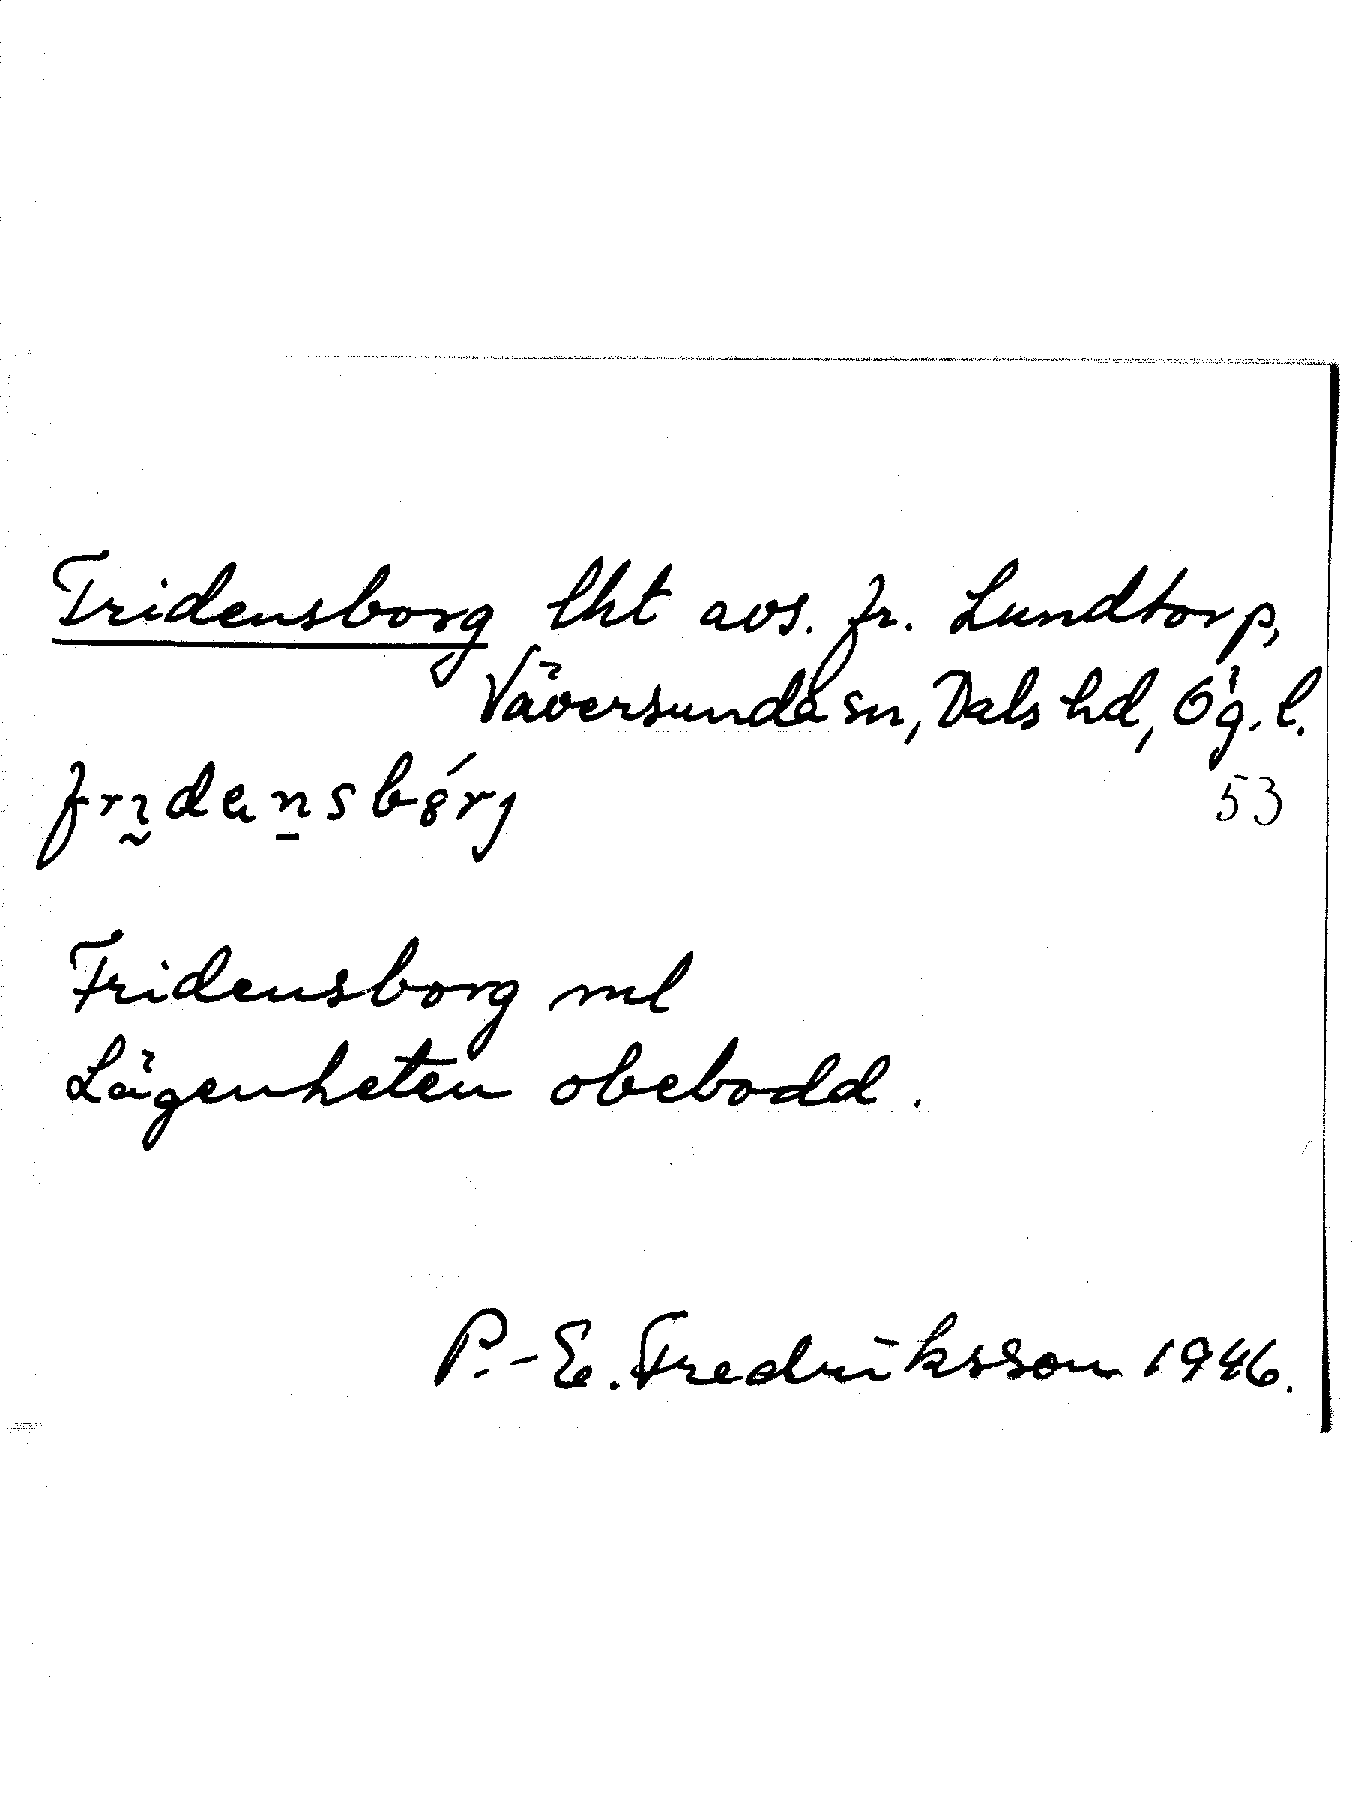 Fridensborg lht avs. fr. Lundtorp,
Väversunda sn, Dals hd, Ög. l.
53
Fridensborg ml
Lägenheten obebodd.
P.-E. Fredriksson 1946.